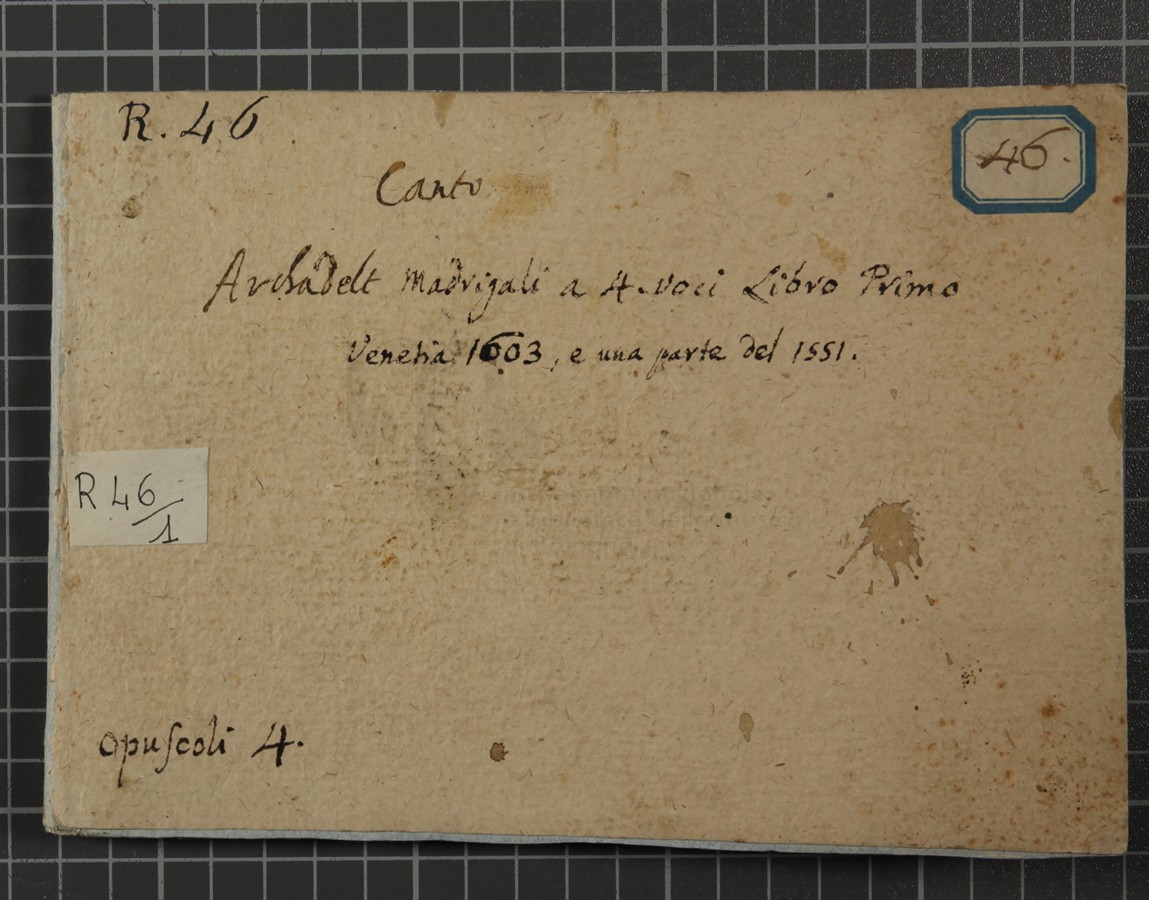 R. 46
46.
Canto
Archadelt Madrigali a 4. voci Libro Primo
Venetia 1603, e una parte del 1551.
R 46/1
opuſcoli 4.